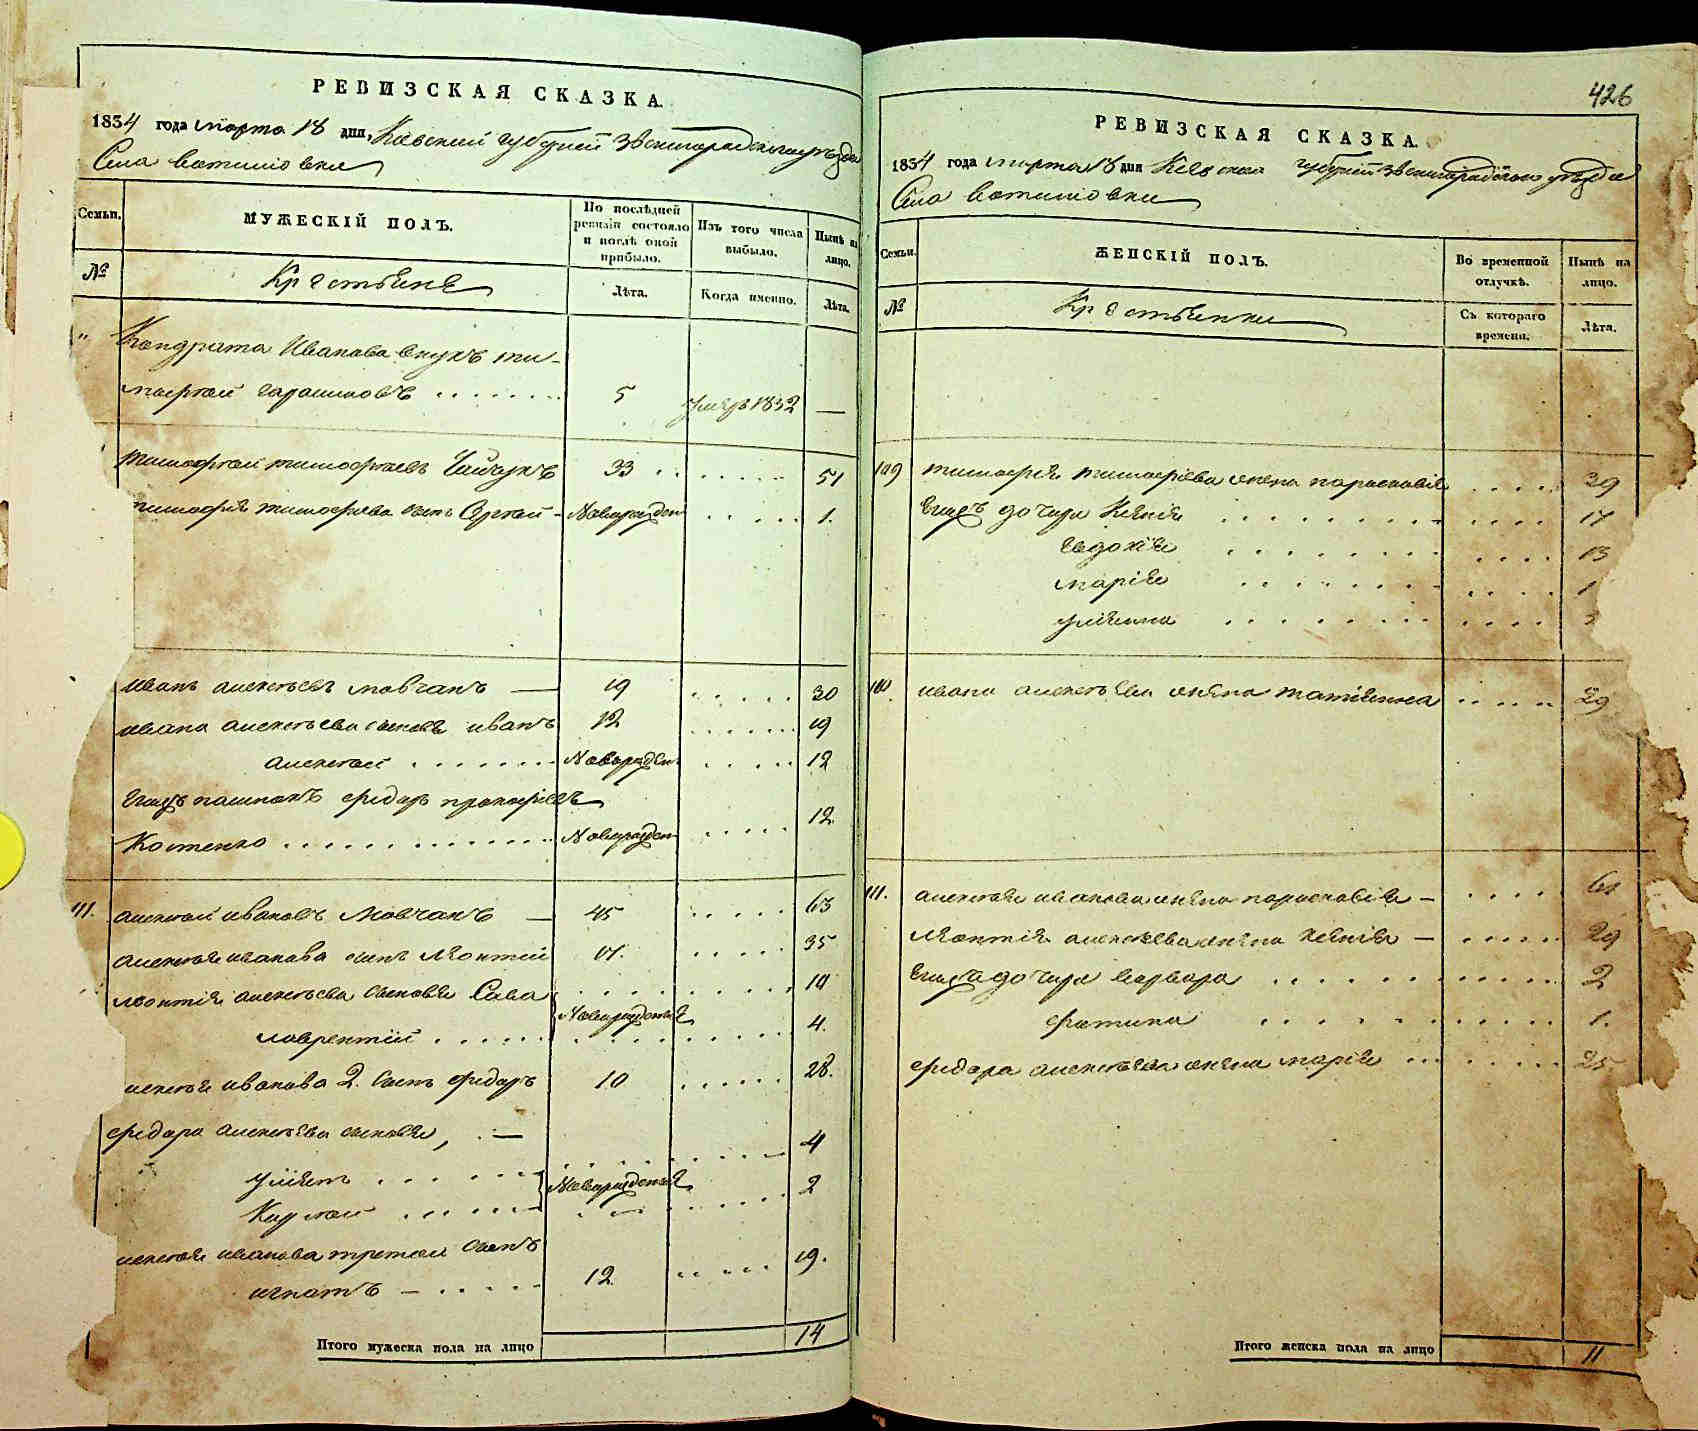 РЕВИЗСКАЯ СКАЗКА.
1834 года марта 18 дня, Киевской губерний Звенигородского уезда
Села Ватилювки
Семьи.
МУЖЕСКІЙ ПОЛЪ.
По послѣдней ревизіи состояло и послѣ оной прибыло.
Изъ того числа выбыло.
Нынѣ на лицо.
№
Крестьяне
Лѣта.
Когда именно.
Лѣта.
" Кондрата Иванова внукъ ти-
мофтей 5 умеръ 1832 —
тимофтей тимофтеевъ 33 51
тимофтея тимофеева сынъ Новорожден 1.
иванъ алексеевъ мовчанъ — 19 30
ивана алексеева сыновя иванъ 12 19
алексей Новорожден 12
Егожъ федоръ прокофиевъ
Костенко Новорожден 12.
111. алексей ивановъ Мовчанъ — 45 63
алексея иванова сынъ Леонтий 17. 35
леонтия алексеева сыновя Сава 10
лаврентий Новорожденые 4.
алексея иванова 2. сынъ федоръ 10 28.
федора алексеева сыновя, —
улиянъ 4
Новорожденые 2
алексея иванова третий сынъ
игнатъ — 12. 19.
Итого мужеска пола на лицо 14
426
РЕВИЗСКАЯ СКАЗКА.
1834 года марта 18 дня Киевской губерний Звенигородского уезда
Села Ватилювки
Семьи.
ЖЕНСКІЙ ПОЛЪ.
Во временной отлучкѣ.
Нынѣ на лицо.
№
Крестьянки
Съ котораго времени.
Лѣта.
109 тимофея тимофеева жена параскавия 39
Егожъ дочери Ксения 17
Евдокия 13
Мария
улияна
110. ивана алексеева жена татияна 29
111. алексея иванова жена параскавия — 61
леонтия алексеева жена ксения — 29
Егожъ дочери варвара 2
фатина 1.
федора алексеева жена мария 25
Итого женска пола на лицо 11